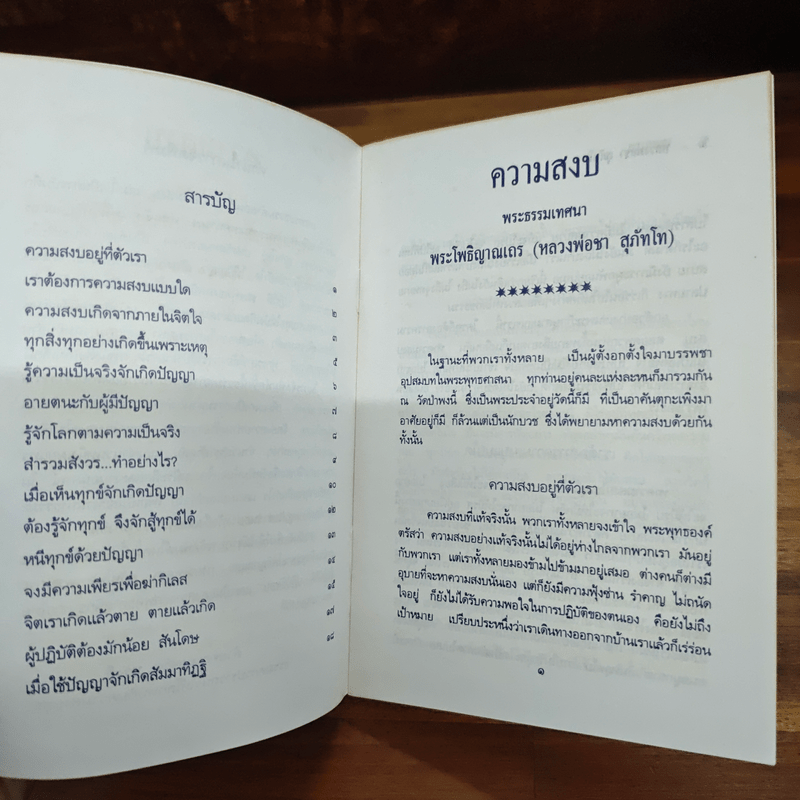 สารบัญ
ความสงบอยู่ที่ตัวเรา
เราต้องการความสงบแบบใด ๑
ความสงบเกิดจากภายในจิตใจ ๒
ทุกสิ่งทุกอย่างเกิดขึ้นเพราะเหตุ ๓
รู้ความเป็นจริงจักเกิดปัญญา ๕
อายตนะกับผู้มีปัญญา ๖
รู้จักโลกตามความเป็นจริง ๗
สำรวมสังวร...ทำอย่างไร? ๘
เมื่อเห็นทุกข์จักเกิดปัญญา ๙
ต้องรู้จักทุกข์ จึงจักสู้ทุกข์ได้ ๑๐
หนีทุกข์ด้วยปัญญา ๑๒
จงมีความเพียรเพื่อฆ่ากิเลส ๑๓
จิตเราเกิดแล้วตาย ตายแล้วเกิด ๑๔
ผู้ปฏิบัติต้องมักน้อย สันโดษ ๑๕
เมื่อใช้ปัญญาจักเกิดสัมมาทิฏฐิ ๑๗
๑๘
ความสงบ
พระธรรมเทศนา
พระโพธิญาณเถร (หลวงพ่อชา สุภัทโท)
********
ในฐานะที่พวกเราทั้งหลาย เป็นผู้ตั้งอกตั้งใจมาบรรพชา
อุปสมบทในพระพุทธศาสนา ทุกท่านอยู่คนละแห่งละหนก็มารวมกัน
ณ วัดป่าพงนี้ ซึ่งเป็นพระประจำอยู่วัดนี้ก็มี ที่เป็นอาคันตุกะเพิ่งมา
อาศัยอยู่ก็มี ก็ล้วนแต่เป็นนักบวช ซึ่งได้พยายามหาความสงบด้วยกัน
ทั้งนั้น
ความสงบอยู่ที่ตัวเรา
ความสงบที่แท้จริงนั้น พวกเราทั้งหลายจงเข้าใจ พระพุทธองค์
ตรัสว่า ความสงบอย่างแท้จริงนั้นไม่ได้อยู่ห่างไกลจากพวกเรา มันอยู่
กับพวกเรา แต่เราทั้งหลายมองข้ามไปข้ามมาอยู่เสมอ ต่างคนก็ต่างมี
อุบายที่จะหาความสงบนั่นเอง แต่ก็ยังมีความฟุ้งซ่าน รำคาญ ไม่ถนัด
ใจอยู่ ก็ยังไม่ได้รับความพอใจในการปฏิบัติของตนเอง คือยังไม่ถึง
เป้าหมาย เปรียบประหนึ่งว่าเราเดินทางออกจากบ้านเราแล้วก็เร่ร่อน
๑